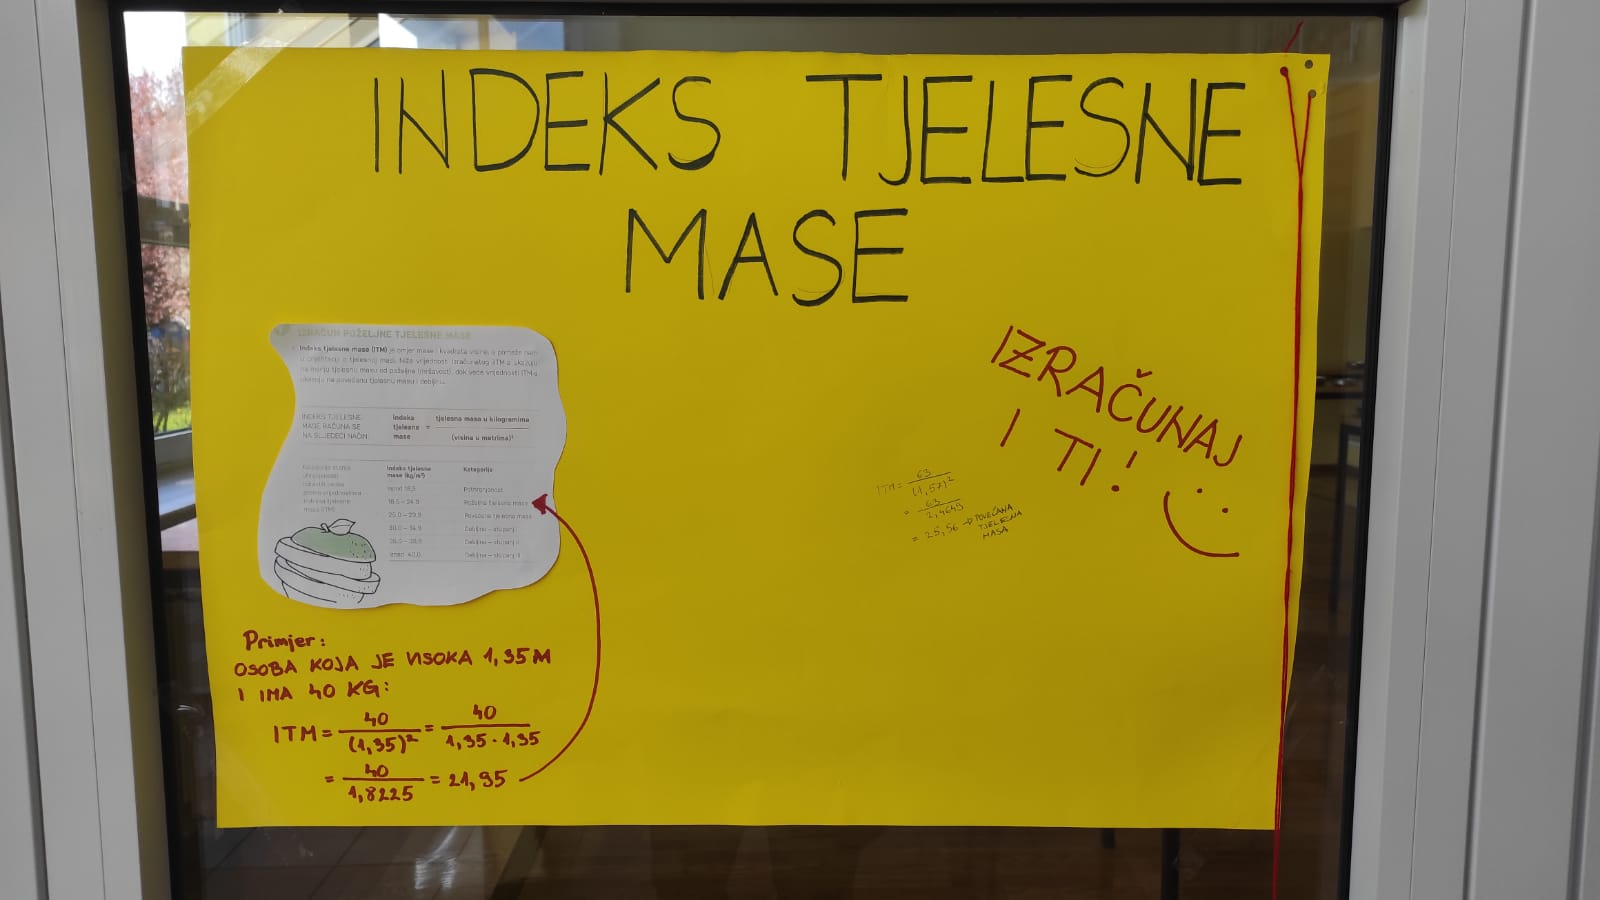 INDEKS TJELESNE
MASE
IZRAČUN POŽELJNE TJELESNE MASE
Indeks tjelesne mase (ITM) je omjer mase i kvadrata visine, a pomaže nam
na manju tjelesnu masu od poželjne (mršavost), dok veće vrijednosti ITM-a
ukazuju na povećanu tjelesnu masu i debljinu.
INDEKS TJELESNE
MASE RAČUNA SE
NA SLJEDEĆI NAČIN:
indeks
tjelesne
mase
=
tjelesna masa u kilogramima
(visina u metrima)²
Indeks tjelesne
mase (kg/m²)
Kategorija
ispod 18,5 Pothranjenost
18.5 – 24.9 Poželjna tjelesna masa
25.0 – 29.9 Povećana tjelesna masa
30.0 – 34.9 Debljina – stupanj I
Debljina – stupanj II
iznad 40,0 Debljina – stupanj III
Primjer:
OSOBA KOJA JE VISOKA 1,35 M
I IMA 40 KG:
ITM = 40 / (1,35)² = 40 / 1,35 · 1,35
= 40 / 1,8225 = 21,95
IZRAČUNAJ
I TI!
ITM = 63 / (1,57)²
= 63 / 2,4649
= 25,56 → POVEĆANA
TJELESNA
MASA